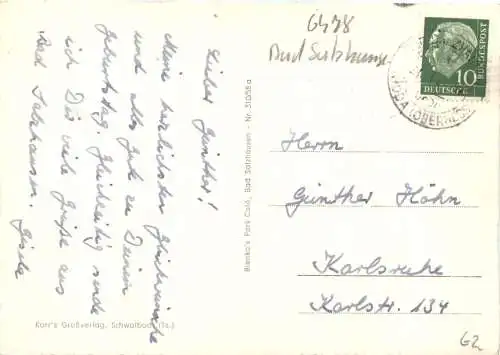 6478
Bad Salzhausen
Lieber Günther!
Meine herzlichsten Glückwünsche
und alles Gute zu Deinem
Geburtstag. Gleichzeitig sende
ich Dir viele Grüße aus
Bad Salzhausen. Gisela
Blanka's Park Café, Bad Salzhausen - Nr. 510/58 a
Karr's Großverlag, Schwalbach (Ts.)
10
DEUTSCHE
BUNDESPOST
NIDDA (OBERHESS
Herrn
Günther Höhn
Karlsruhe
Karlstr. 134
62